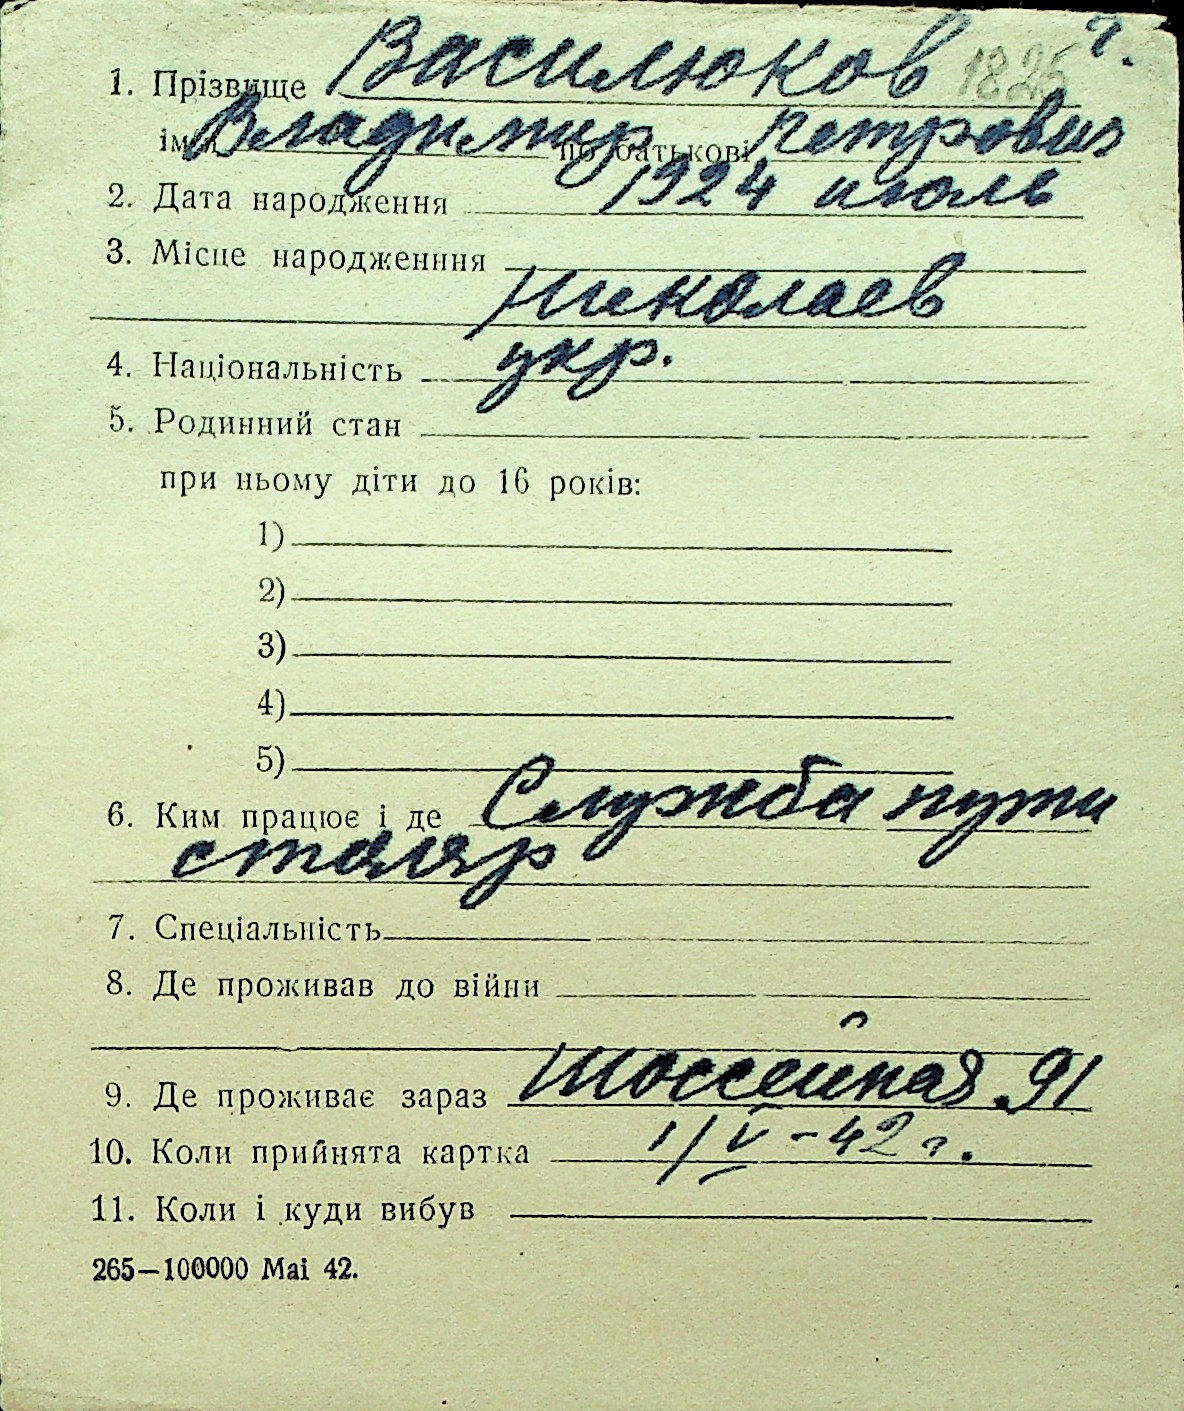 г.
1. Прізвище Василюков 1825
ім'я Владимир по батькові Петрович
2. Дата народження 1924 июль
3. Місце народженння
Николаев
4. Національність укр.
5. Родинний стан
при ньому діти до 16 років:
1)
2)
3)
4)
5)
6. Ким працює і де Служба пути
столяр
7. Спеціальність
8. Де проживав до війни
9. Де проживає зараз Шоссейная 91
10. Коли прийнята картка 1/V-42 г.
11. Коли і куди вибув
265—100000 Mai 42.